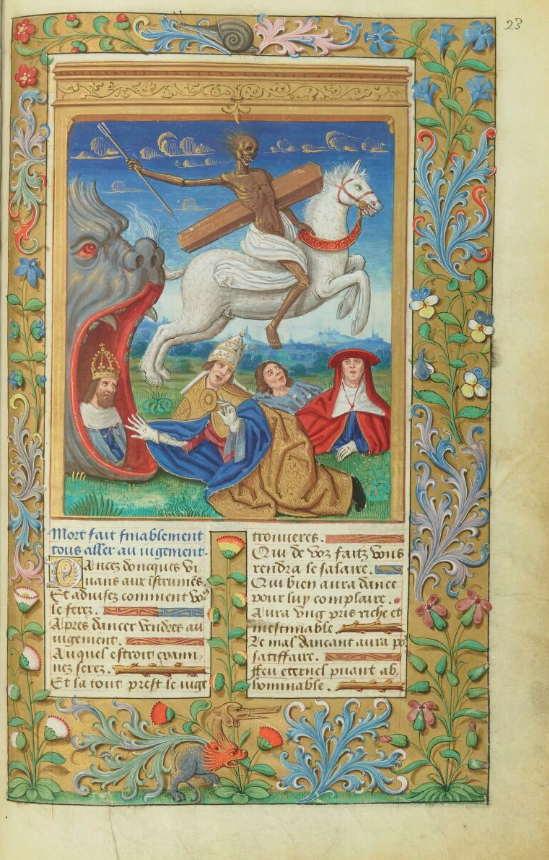 23
Mort fait finablement
tous aller au iugement.
Dancez doncques vi
uans aux istrumēs.
Et aduisez comment voꝰ
le ferez.
Apres dancer vendres au
iugement.
Auquel estroit exami
nez serez.
Et la tout prest le iuge
trouueres.
Qui de voz faitz vous
rendra le salaire.
Qui bien aura dance
pour luy complaire.
Aura vng pris riche et
inestimable.
Le mal dancant aura po
satiffaire.
Feu eternel puant ab
hominable.